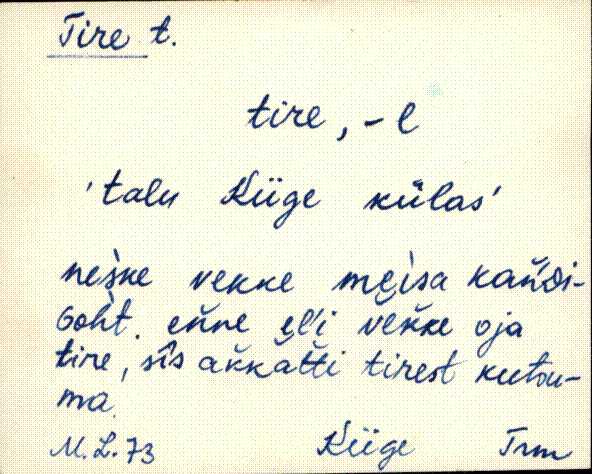 Tire t.
tire, -l
'talu Kiige külas'
neìske vekke mẹisa kan̆di-
Goh̀t. en̆ne ẹl'i vĕkke oja
tire, sîs ak̆kăt̆ti tirest kutsu-
ma.
M. L. 73 Kiige Trm